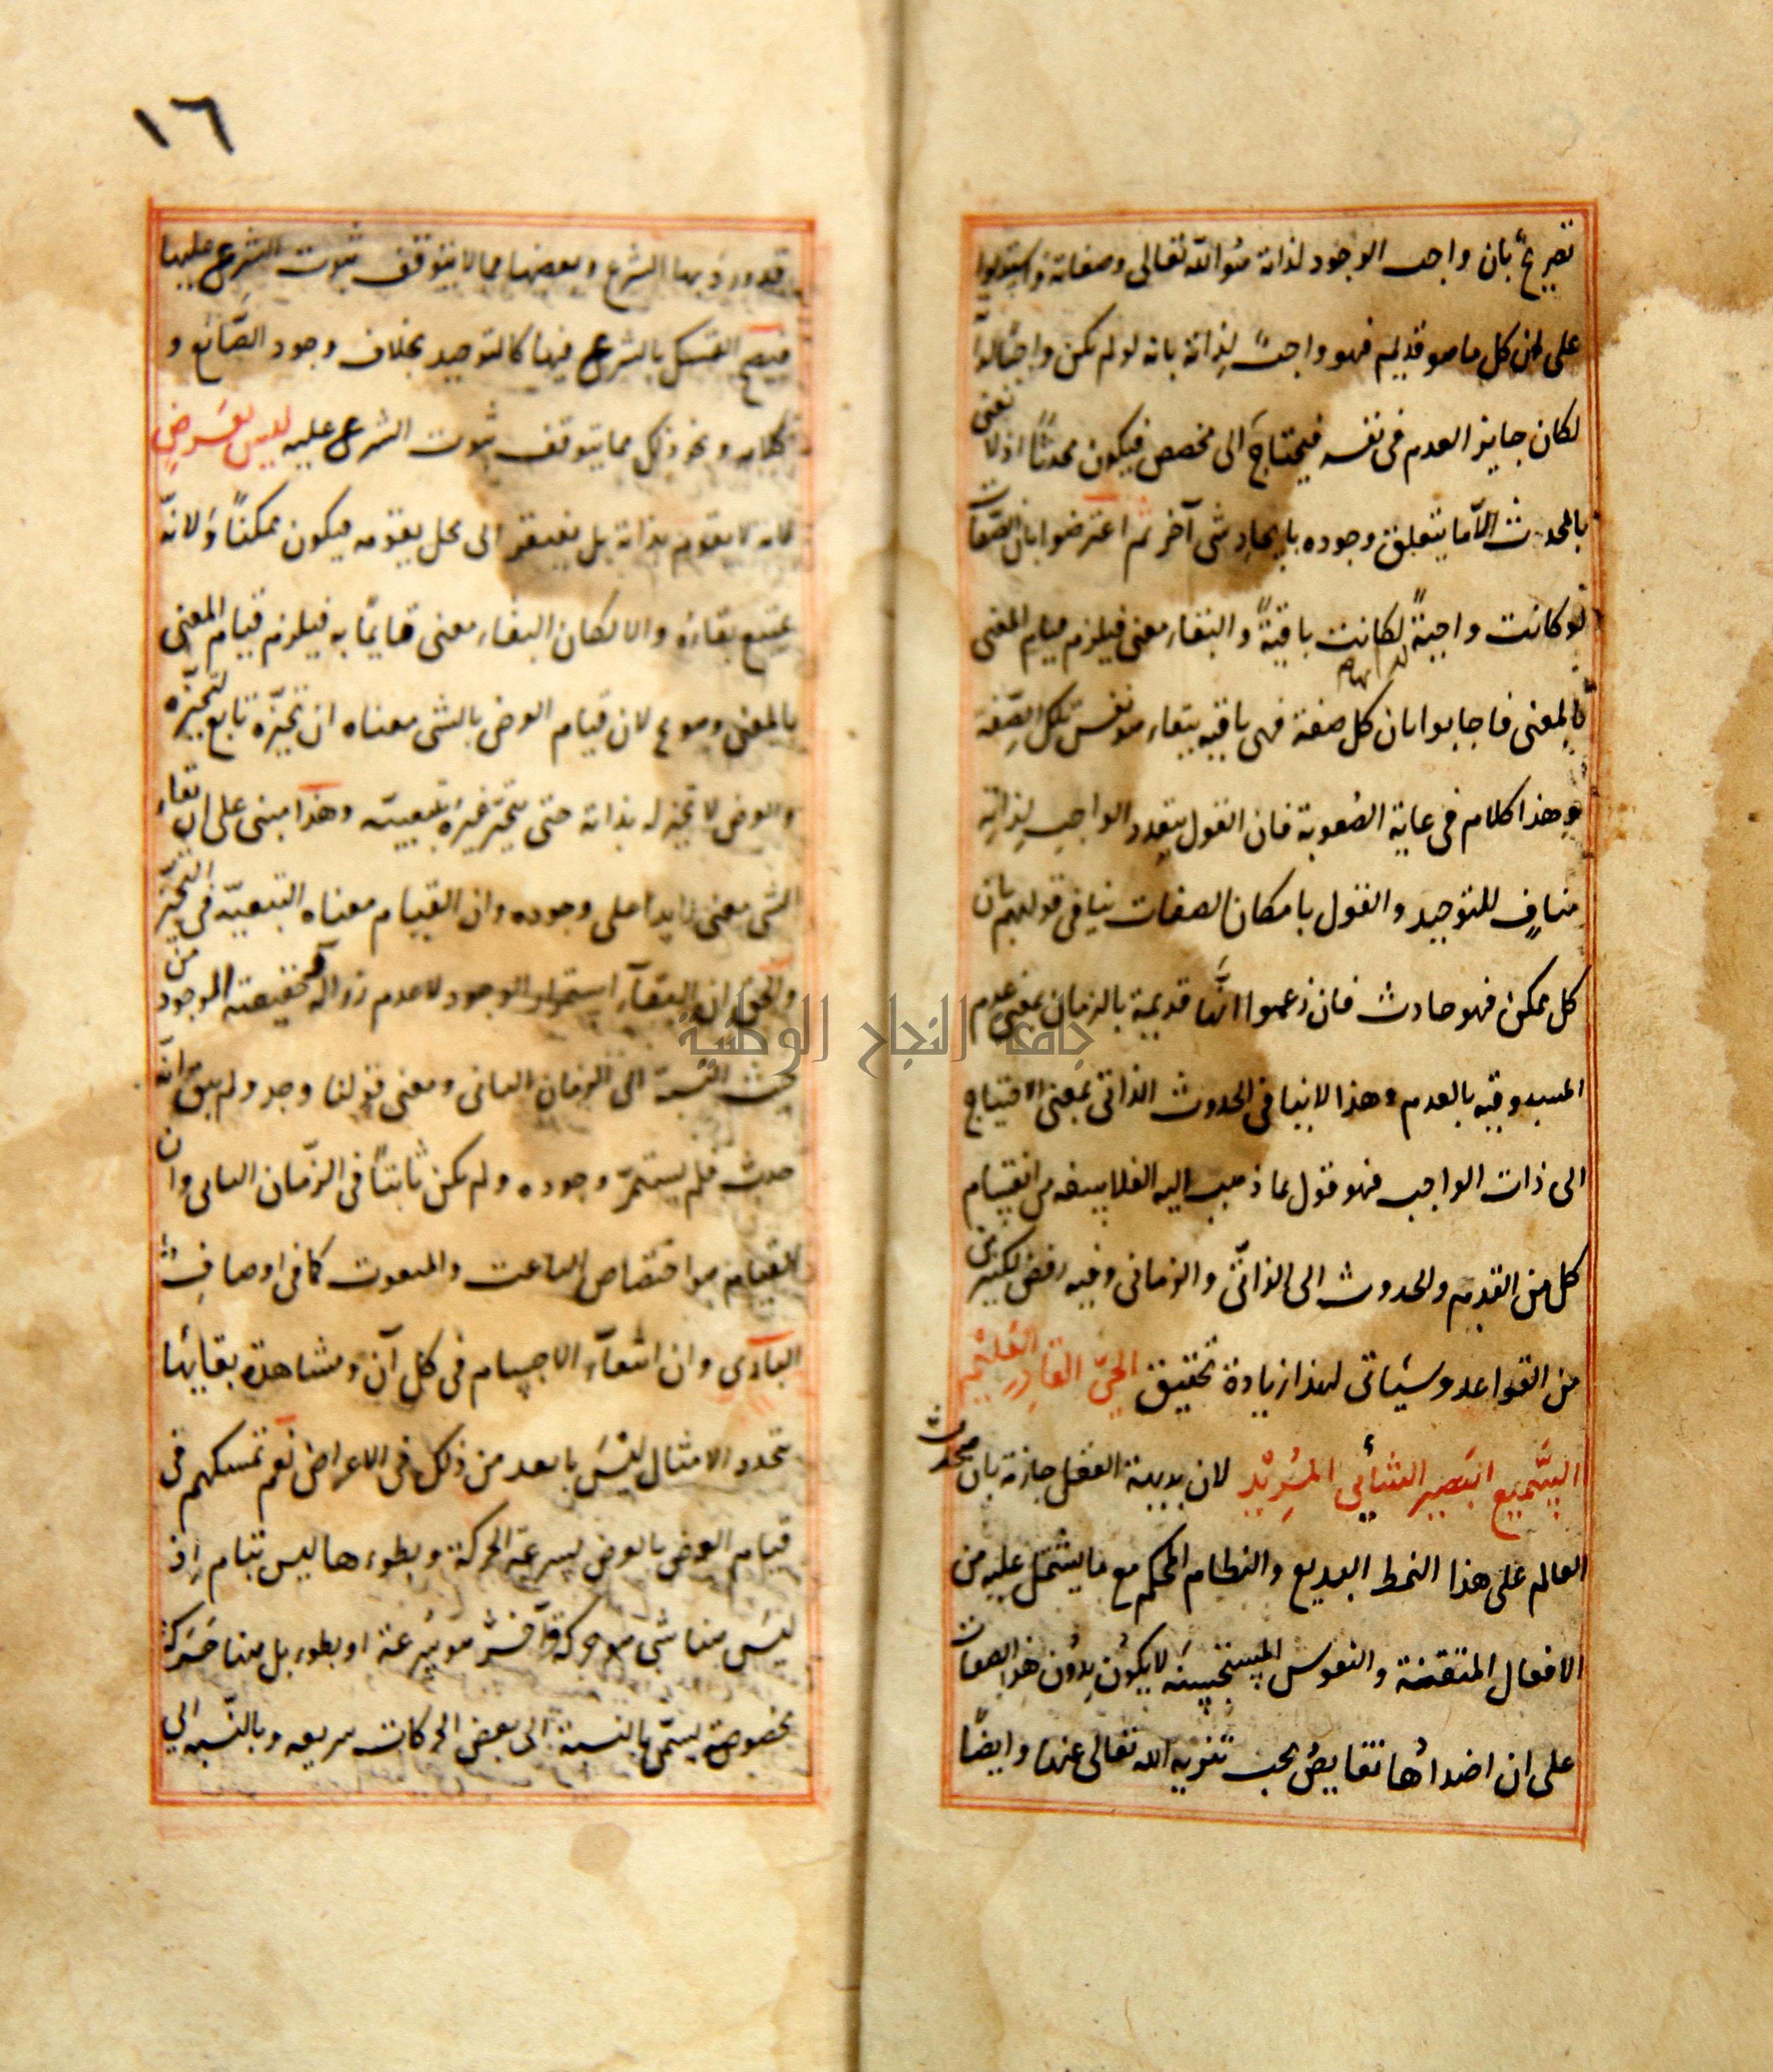 تصريح بأن واجب الوجود لذاته هو الله تعالى وصفاته واستدلوا
على ان كل ما هو قديم فهو واجب لذاته بانه لو لم يكن واجبا لذاته
لكان جايز العدم فى نفسه فيحتاج الى مخصص فيكون محدثا اذ لا نعنى
بالمحدث الا ما يتعلق وجوده بايجاد شى آخر ثم اعترضوا بان الصفات
لو كانت واجبة لكانت باقية والبقاء معنى فيلزم قيام المعنى
بالمعنى فاجابوا بان كل صفة فهى باقيه ببقاء هو نفس تلك الصفة
وهذا كلام فى غاية الصعوبة فان القول بتعدد الواجب لذاته
مناف للتوحيد والقول بامكان الصفات ينافى قولهم بان
كل ممكن فهو حادث فان زعموا انها قديمة بالزمان بمعنى عدم
المسبوقيه بالعدم وهذا لا ينافى الحدوث الذاتى بمعنى الاحتياج
الى ذات الواجب فهو قول بما ذهب اليه الفلاسفه من انقسام
كل من القدم والحدوث الى الذاتى والزمانى وفيه رفض لكثير من
من القواعد وسياتى لهذا زيادة تحقيق الحيّ القادر العليم
السّميع البصير الشائي المريد لان بديهة العقل جازمة بان محدث
العالم على هذا النمط البديع والنظام المحكم مع ما يشتمل عليه من
الافعال المتقنة والنقوس المستحسنه لا يكون بدون هذه الصفات
على ان اضدادها نقايص يجب تنزيه الله تعالى عنها وايضًا
١٦
قد ورد بها الشرع وبعضها مما لا يتوقف ثبوت الشرع عليها
فيصح التمسك بالشرع فيها كالتوحيد بخلاف وجود الصّانع و
كلامه ونحو ذلك مما يتوقف ثبوت الشرع عليه ليس بعرض
لانه لا يقوم بذاته بل يفتقر الى محل يقومه فيكون ممكنًا ولانّه
يمتنع بقاؤه والا لكان البقاء معنى قايمًا به فيلزم قيام المعنى
بالمعنى وهو مح لان قيام العرض بالشى معناه ان تحيّزه تابع لتحيّزه
والعرض لا تحيز له بذاته حتى يتحيّز غيره بتبعيته وهذا مبنى على ان بقاء
الشى معنى زايدا على وجوده وان القيام معناه التبعيّة فى التحيّز
والحق ان البقاء استمرار الوجود لا عدم زواله وحقيقته الموجود من
حيث النسبة الى الزمان الثانى ومعنى قولنا وجد ولم يبق انّه
حدث فلم يستمرّ وجوده ولم يكن ثابتًا فى الزمان الثانى وان
القيام هو اختصاص الناعت والمنعوت كما فى اوصاف
البارى وان انتفاء الاجسام فى كل آن ومشاهدة بقايها
بتجدد الامثال ليس بابعد من ذلك فى الاعراض نعم تمسكهم فى
قيام العرض بالعرض بسرعة الحركة وبطوءها ليس بتام اذ
ليس هنا شى هو حركة وآخر هو سرعة او بطوء بل هنا حركة
مخصوصة يسمّى بالنسبة الى بعض الحركات سريعه وبالنسبه الى
جامعة النجاح الوطنية